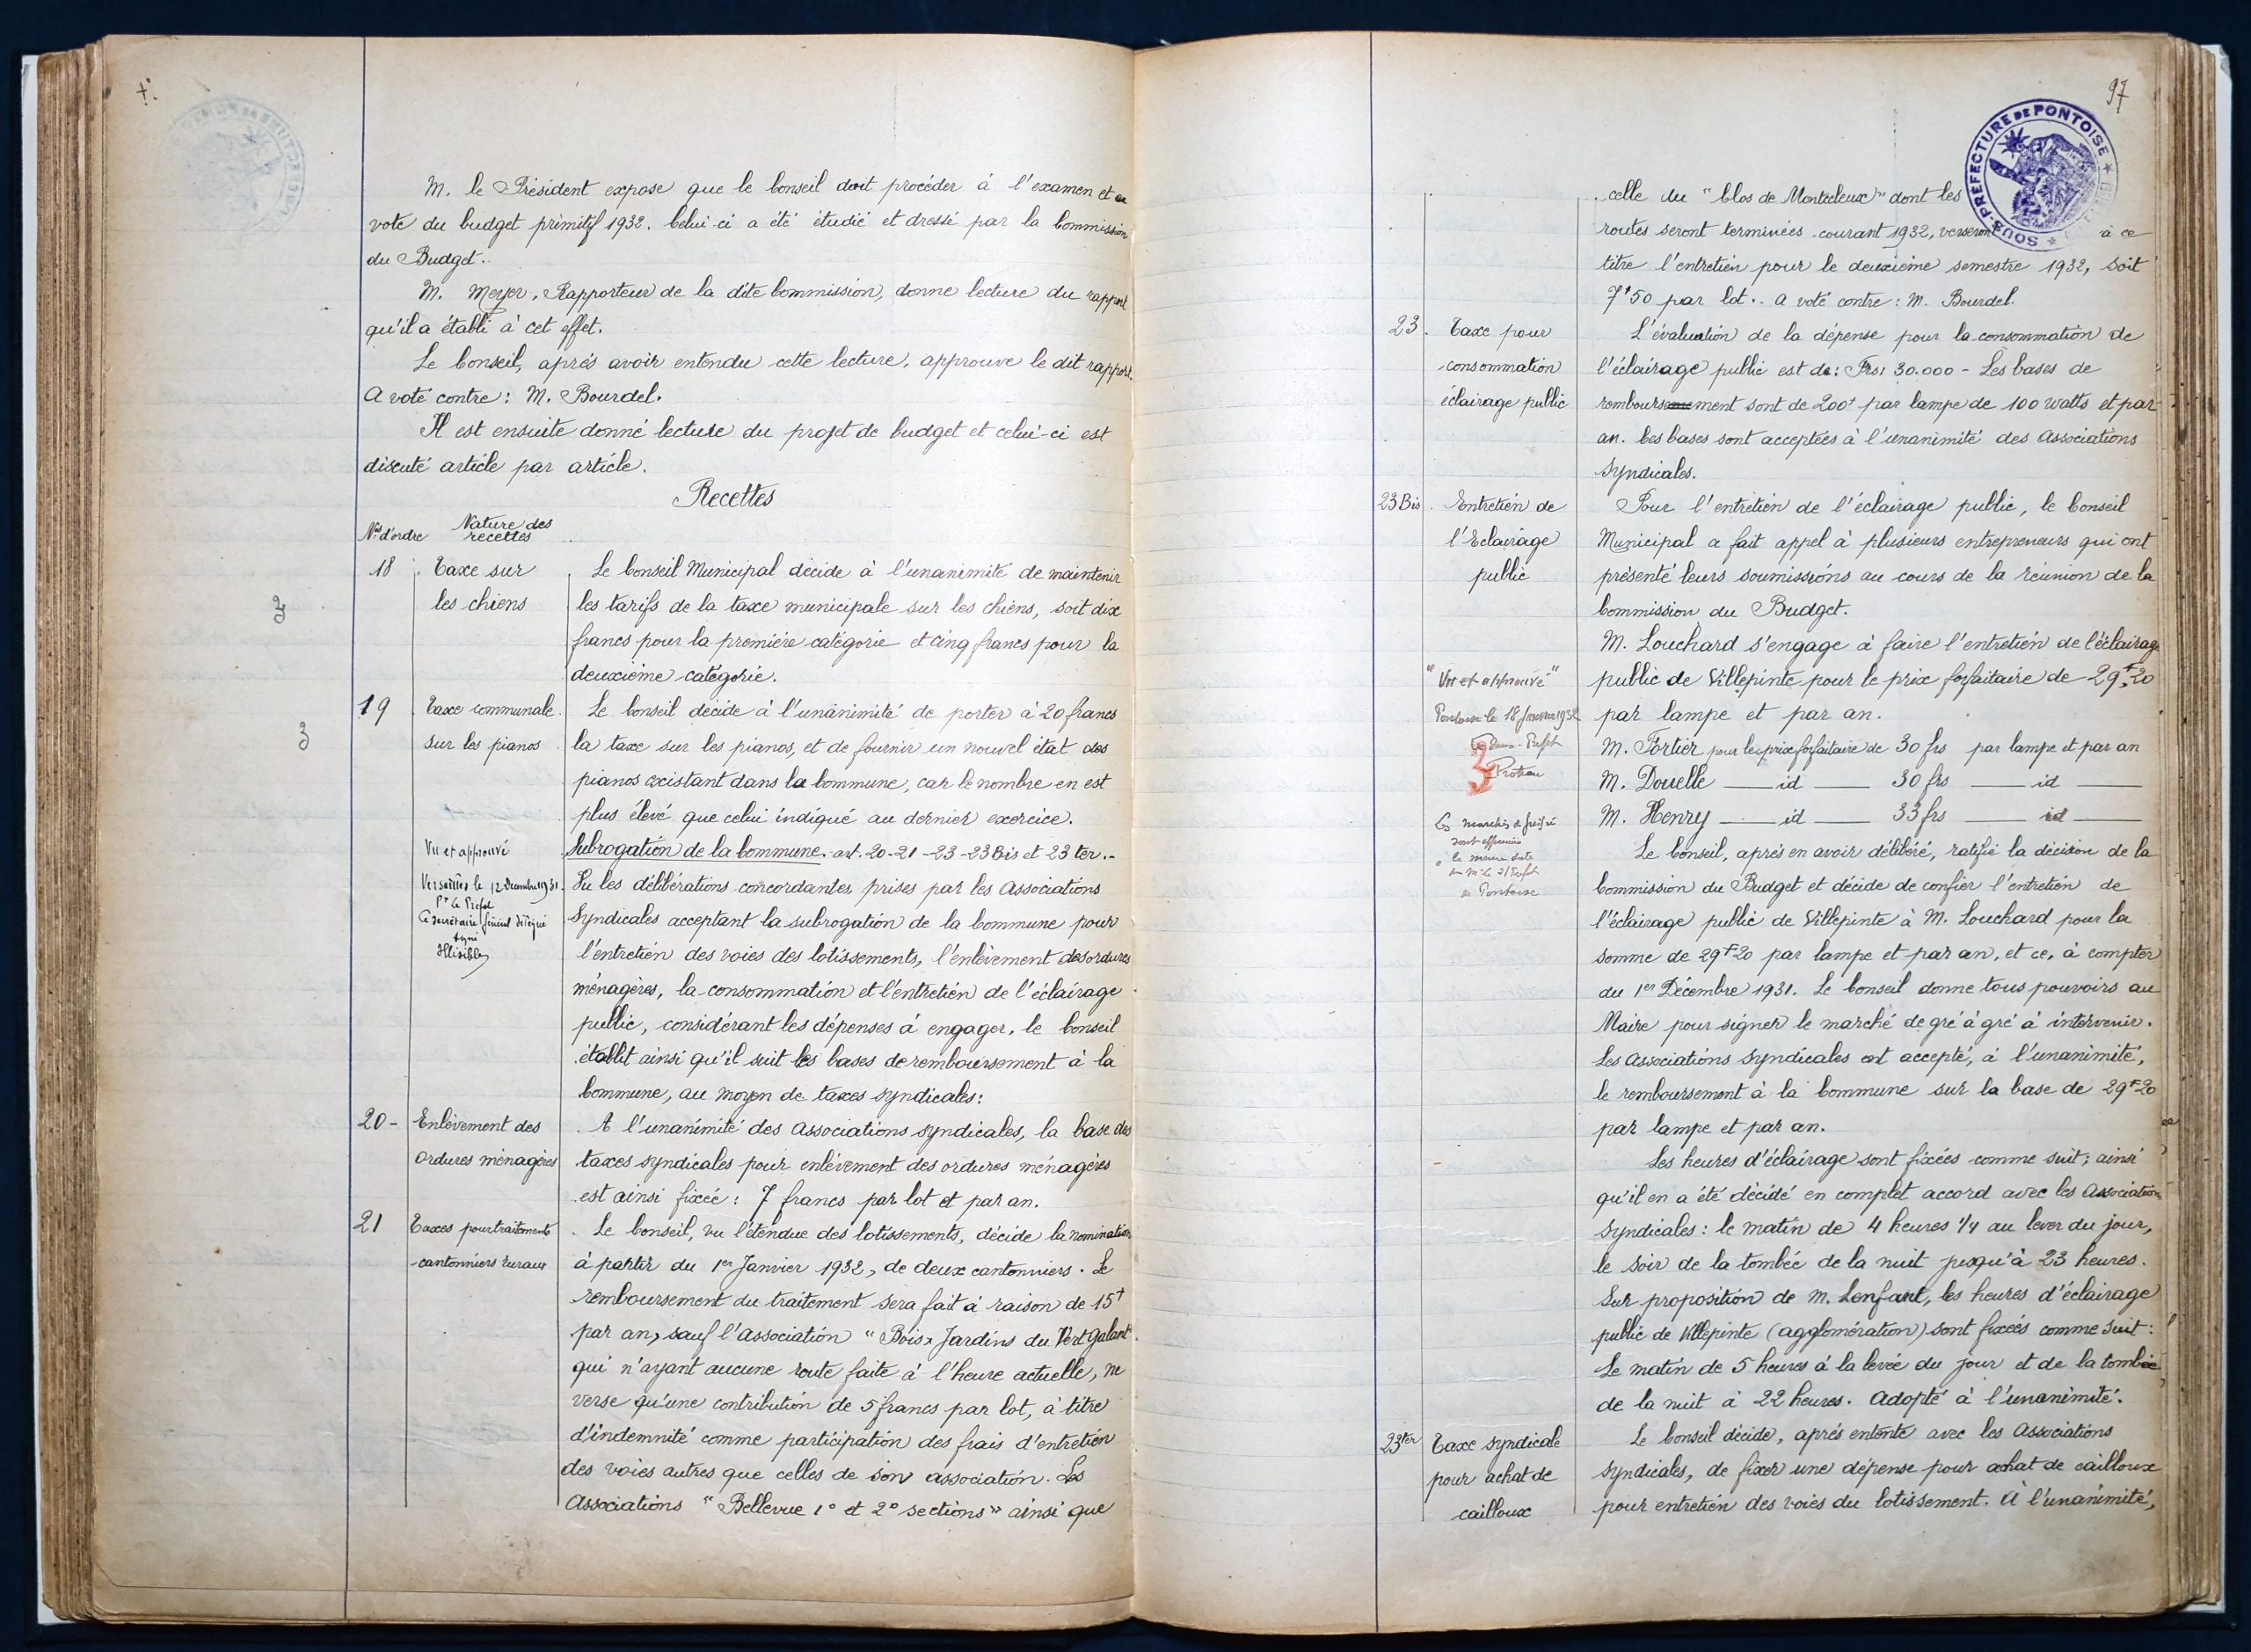 M. le Président expose que le Conseil doit procéder à l'examen et au
vote du budget primitif 1932. Celui-ci a été étudié et dressé par la Commission
du Budget.
M. Meyer, Rapporteur de la dite Commission, donne lecture du rapport
qu'il a établi à cet effet.
Le Conseil, après avoir entendu cette lecture, approuve le dit rapport.
A voté contre : M. Bourdel.
Il est ensuite donné lecture du projet de budget et celui-ci est
discuté article par article.
Recettes
Nos d'ordre Nature des
recettes
18 Taxe sur
les chiens
Le Conseil Municipal décide à l'unanimité de maintenir
les tarifs de la taxe municipale sur les chiens, soit dix
francs pour la première catégorie et cinq francs pour la
deuxième catégorie.
3
19 Taxe communale
sur les pianos
Le Conseil décide à l'unanimité de porter à 20 francs
la taxe sur les pianos, et de fournir un nouvel état des
pianos existant dans la Commune, car le nombre en est
plus élevé que celui indiqué au dernier exercice.
3
Vu et approuvé
Versailles le 12 Décembre 1931.
Pr Le Préfet
Le Secrétaire Général délégué
signé
Illisible
Subrogation de la Commune. art. 20-21-23-23 Bis et 23 ter.-
Vu les délibérations concordantes prises par les Associations
Syndicales acceptant la subrogation de la Commune pour
l'entretien des voies des lotissements, l'enlèvement des ordures
ménagères, la consommation et l'entretien de l'éclairage
public, considérant les dépenses à engager, le Conseil
établit ainsi qu'il suit les bases de remboursement à la
Commune, au moyen de taxes syndicales :
20 - Enlèvement des
ordures ménagères
A l'unanimité des Associations syndicales, la base des
taxes syndicales pour enlèvement des ordures ménagères
est ainsi fixée : 7 francs par lot et par an.
21 Taxes pour traitements
cantonniers ruraux
Le Conseil, vu l'étendue des lotissements, décide la nomination
à partir du 1er Janvier 1932, de deux cantonniers. Le
remboursement du traitement sera fait à raison de 15f
par an, sauf l'Association "Bois & Jardins du Vert Galant"
qui n'ayant aucune route faite à l'heure actuelle, ne
verse qu'une contribution de 5 francs par lot, à titre
d'indemnité comme participation des frais d'entretien
des voies autres que celles de son association. Les
Associations "Bellevue 1° et 2° sections" ainsi que
97
SOUS-PRÉFECTURE DE PONTOISE
celle du "Clos de Montceleux" dont les
routes seront terminées courant 1932, verseront à ce
titre l'entretien pour le deuxième semestre 1932, soit
7f50 par lot.. A voté contre : M. Bourdel.
23. Taxe pour
consommation
éclairage public
L'évaluation de la dépense pour la consommation de
l'éclairage public est de : Frs : 30.000 - Les bases de
remboursement sont de 200f par lampe de 100 watts et par
an. Ces bases sont acceptées à l'unanimité des Associations
Syndicales.
23 Bis. Entretien de
l'Eclairage
public
Pour l'entretien de l'éclairage public, le Conseil
Municipal a fait appel à plusieurs entrepreneurs qui ont
présenté leurs soumissions au cours de la réunion de la
Commission du Budget.
M. Louchard s'engage à faire l'entretien de l'éclairage
public de Villepinte pour le prix forfaitaire de 29f,20
par lampe et par an.
M. Portier pour le prix forfaitaire de 30 frs par lampe et par an
M. Douelle — id — 30 frs — id —
M. Henry — id — 33 frs — id —
"Vu et approuvé"
Pontoise le 18 Janvier 1932
Le Sous-Préfet
3
Les marchés de gré à gré
sont approuvés
à la même date
de Pontoise
Le Conseil, après en avoir délibéré, ratifie la décision de la
Commission du Budget et décide de confier l'entretien de
l'éclairage public de Villepinte à M. Louchard pour la
somme de 29f20 par lampe et par an, et ce, à compter
du 1er Décembre 1931. Le Conseil donne tous pouvoirs au
Maire pour signer le marché de gré à gré à intervenir.
Les Associations Syndicales ont accepté, à l'unanimité,
le remboursement à la Commune sur la base de 29f20
par lampe et par an.
Les heures d'éclairage sont fixées comme suit ; ainsi
qu'il en a été décidé en complet accord avec les Associations
Syndicales : le matin de 4 heures 1/4 au lever du jour,
le soir de la tombée de la nuit jusqu'à 23 heures.
Sur proposition de M. Lenfant, les heures d'éclairage
public de Villepinte (agglomération) sont fixées comme suit :
Le matin de 5 heures à la levée du jour et de la tombée
de la nuit à 22 heures. Adopté à l'unanimité.
23ter Taxe syndicale
pour achat de
cailloux
Le Conseil décide, après entente avec les Associations
Syndicales, de fixer une dépense pour achat de cailloux
pour entretien des voies du lotissement. A l'unanimité,